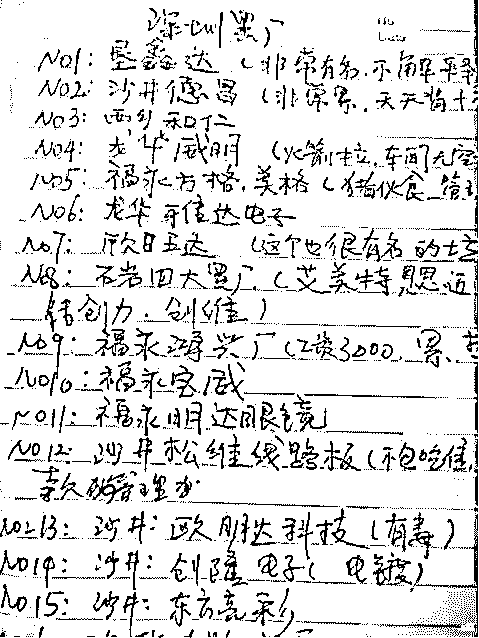 深圳黑厂
NO1：垦鑫达（非常有名，不解释
NO2：沙井德昌（非常累，天天
NO3：西乡和仁
NO4：龙华威明（站立，车间无空
NO5：福永方格，英格（猪伙食
NO6：龙华 信达电子
NO7：欣旺达（这个也很有名的
NO8：石岩四大黑厂，（艾美特，恩思迈
佳创力，创维）
NO9：福永鸿兴厂（工资3000，累，
NO10：福永宝威
NO11：福永明达眼镜
NO12：沙井松维线路板（不包吃住，
NO13：沙井：欧朋达科技（有毒）
NO14：沙井：创隆电子（电镀）
NO15：沙井：东方亮彩